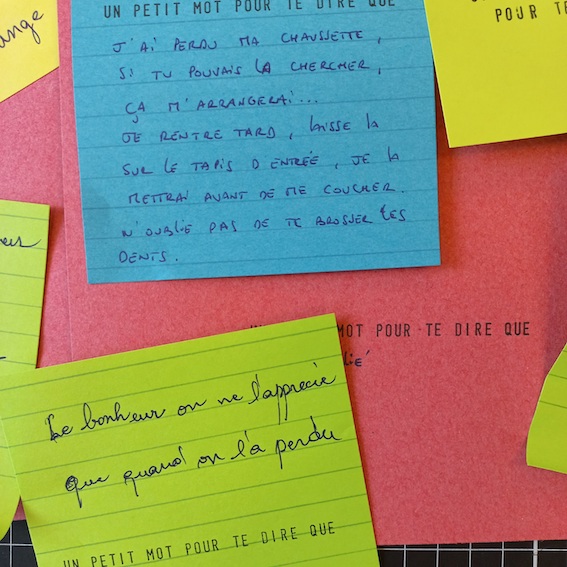 ange
UN PETIT MOT POUR TE DIRE QUE
J'AI PERDU MA CHAUSSETTE,
SI TU POUVAIS LA CHERCHER,
ÇA M'ARRANGERAI...
JE RENTRE TARD, LAISSE LA
SUR LE TAPIS D ENTRÉE, JE LA
METTRAI AVANT DE ME COUCHER.
N'OUBLIE PAS DE TE BROSSER LES
DENTS.
POUR TE
MOT POUR TE DIRE QUE
Le bonheur on ne l'apprécie
que quand on l'a perdu
UN PETIT MOT POUR TE DIRE QUE